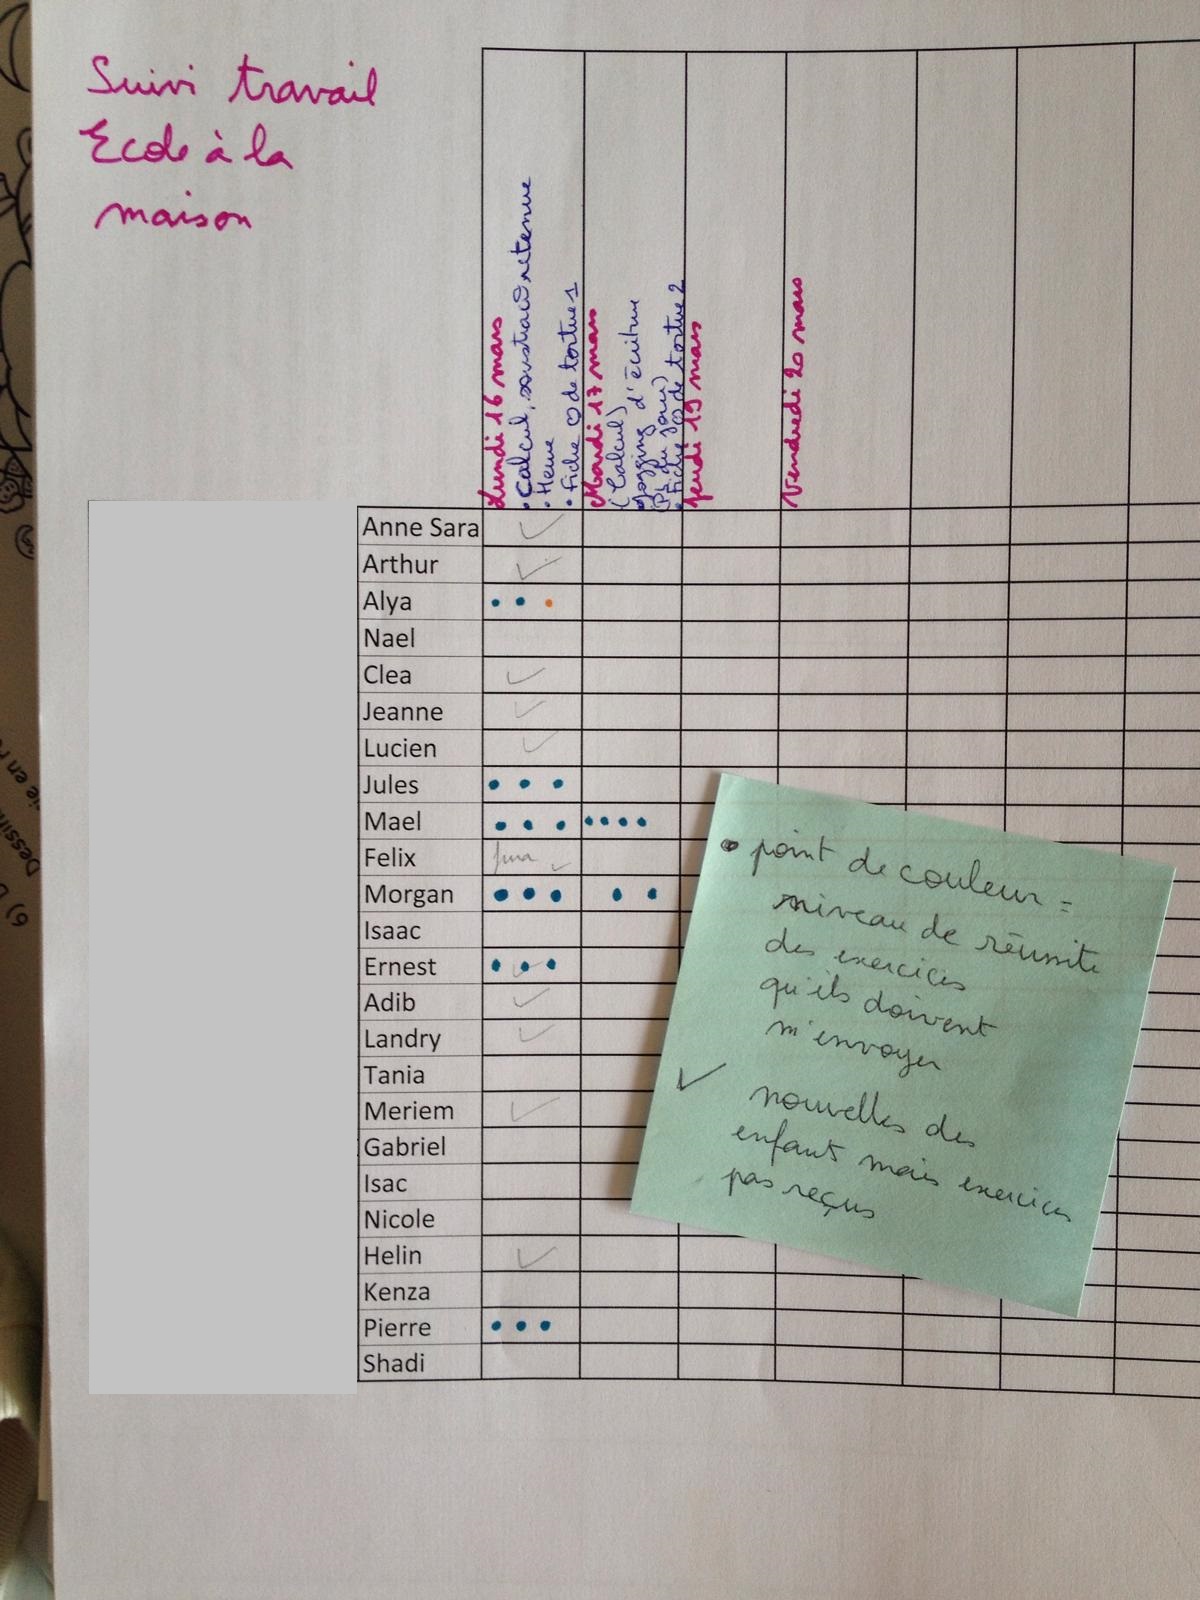 Suivi travail
Ecole à la
maison
Lundi 16 mars
• Calcul, soustrac° retenue
• Heure
• Fiche ♡ de tortue 1
Mardi 17 mars
(Calcul)
jogging d'écriture
(Ph du jour)
• Fiche ♡ de tortue 2
jeudi 19 mars
Vendredi 20 mars
Anne Sara ✓
Arthur ✓
Alya • • •
Nael
Clea ✓
Jeanne ✓
Lucien ✓
Jules • • •
Mael • • • • • • •
Felix ✓
Morgan • • • • •
Isaac
Ernest • • •
Adib ✓
Landry ✓
Tania
Meriem ✓
Gabriel
Isac
Nicole
Helin ✓
Kenza
Pierre • • •
Shadi
• point de couleur =
niveau de réussite
des exercices
qu'ils doivent
m'envoyer
✓ nouvelles des
enfants mais exercices
pas reçus
6)
Dessin